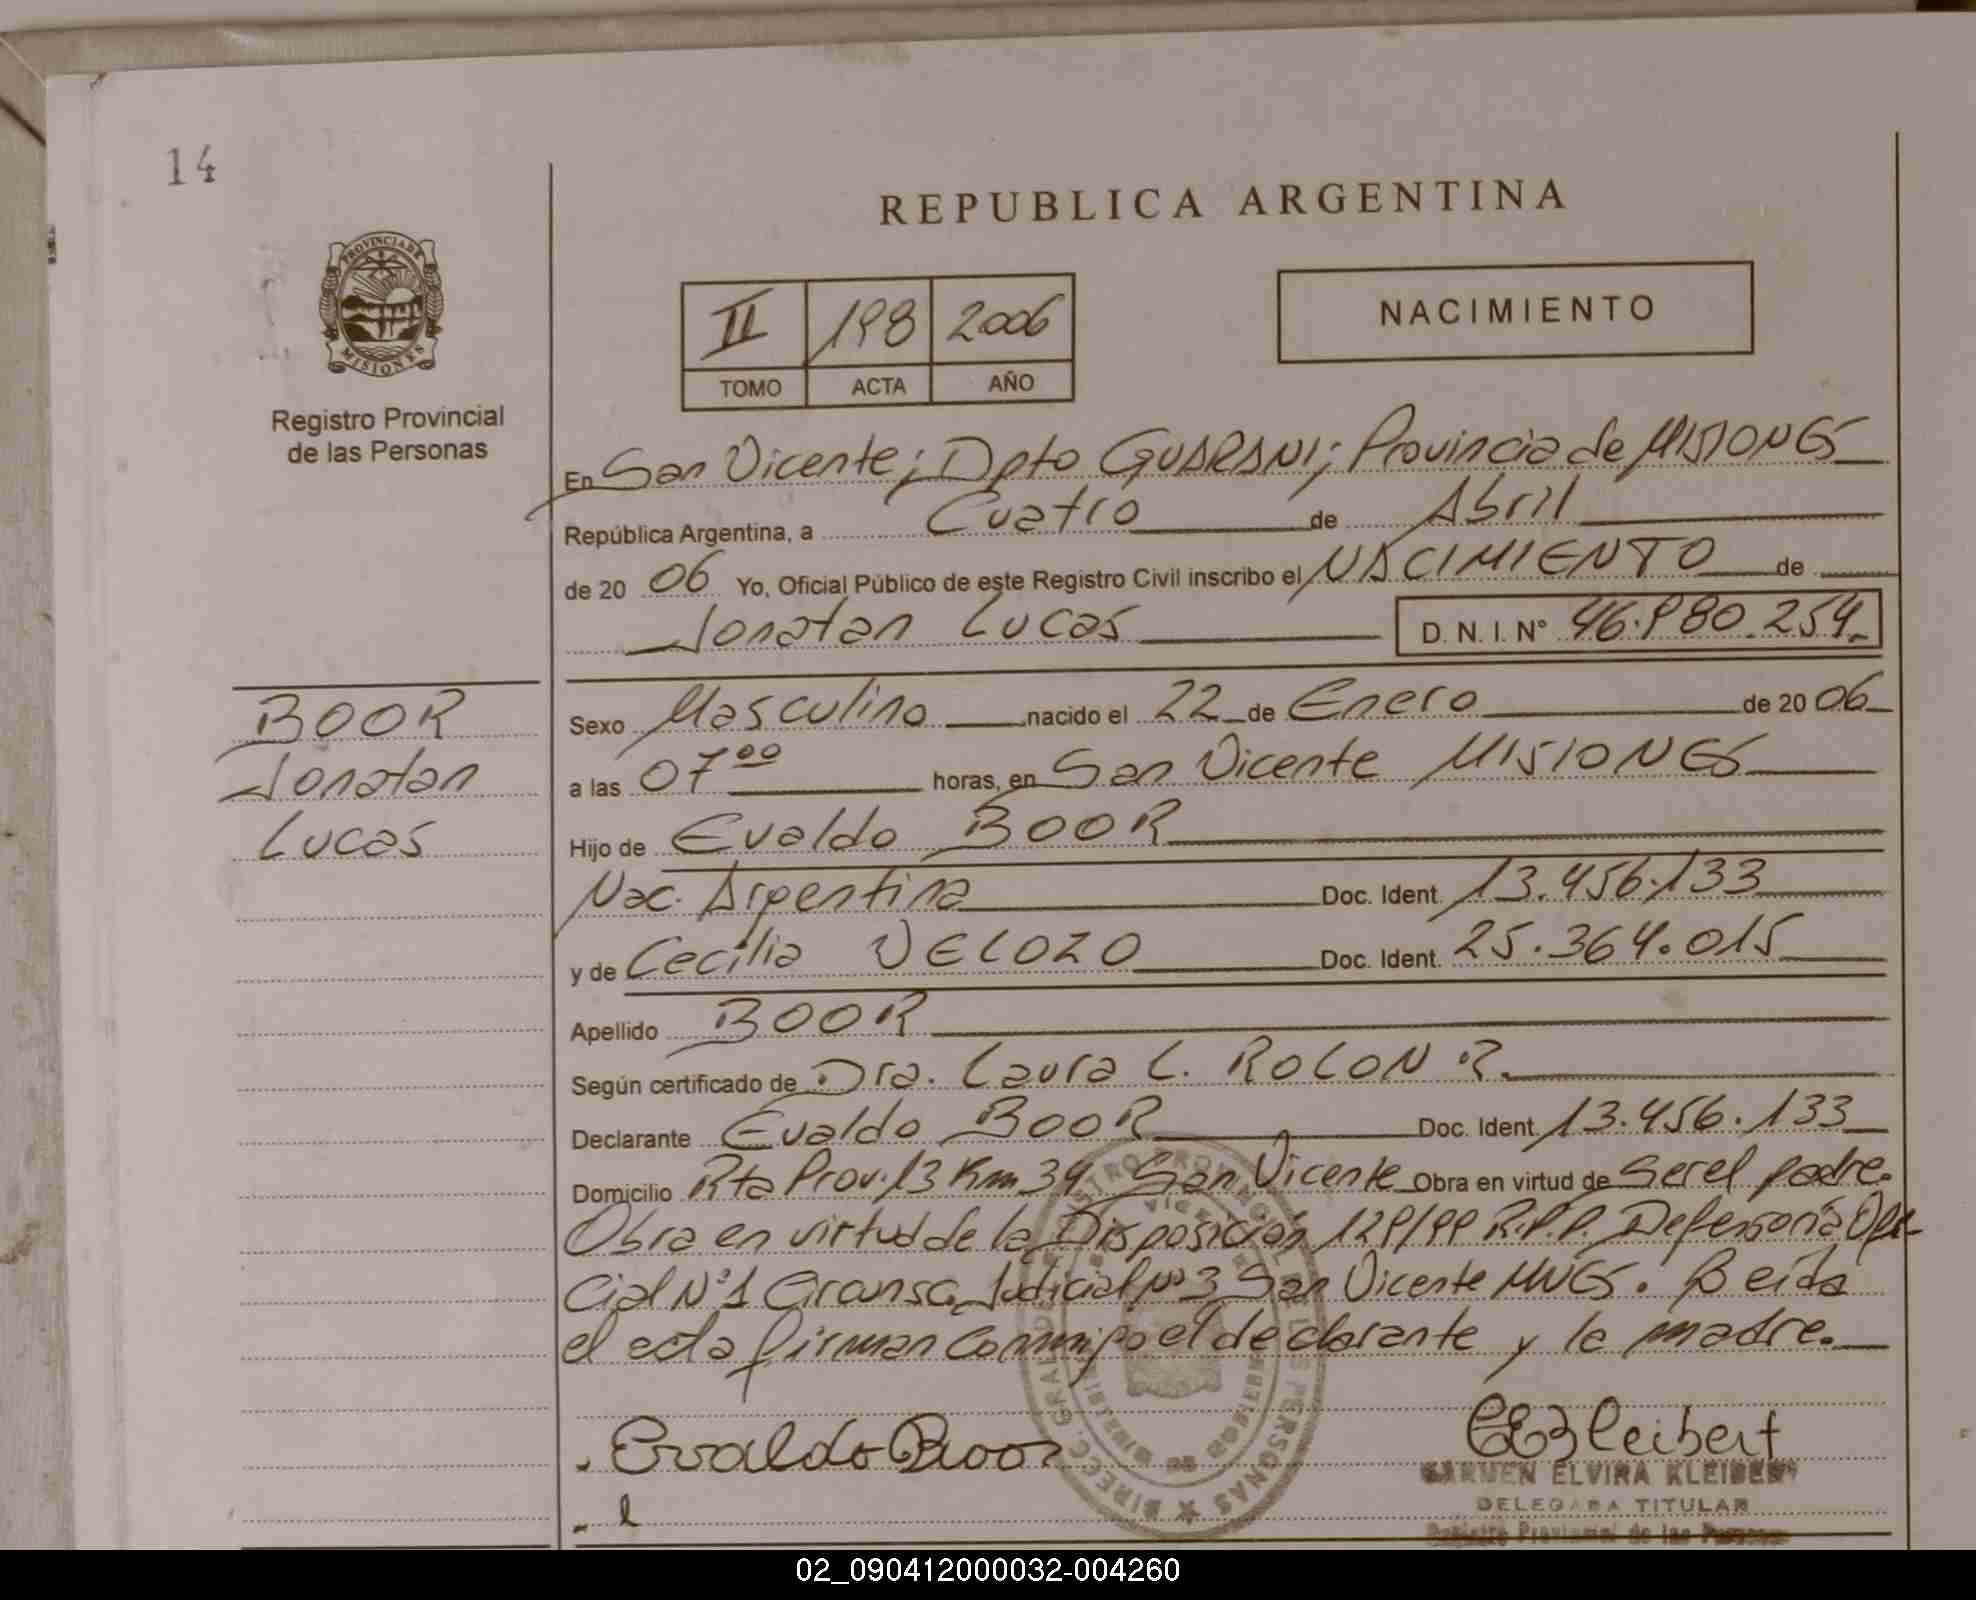 14
REPUBLICA ARGENTINA
PROVINCIA DE
MISIONES
Registro Provincial
de las Personas
II 198 2006
TOMO ACTA AÑO
NACIMIENTO
En San Vicente; Dpto GUARANI; Provincia de MISIONES
República Argentina, a Cuatro de Abril
de 20 06 Yo, Oficial Público de este Registro Civil inscribo el NACIMIENTO de
Jonatan Lucas D. N. I. N° 46.980.254.
BOOR
Jonatan
Lucas
Sexo Masculino nacido el 22 de Enero de 20 06
a las 07 00 horas, en San Vicente MISIONES
Hijo de Evaldo BOOR
Nac. Argentina Doc. Ident. 13.456.133
y de Cecilia VELOZO Doc. Ident. 25.364.015
Apellido BOOR
Según certificado de Dra. Laura L. ROLON R.
Declarante Evaldo BOOR Doc. Ident. 13.456.133
Domicilio Rta Prov. 13 Km 34 San Vicente Obra en virtud de Ser el padre.
Obra en virtud de la Disposición 129/99 R.P.P. Defensoria Ofi-
cial N°1 Circunsc. Judicial N°3 San Vicente MNES. Leida
el acta firman conmigo el declarante y la madre.
Evaldo Boor
CEKleibert
CARMEN ELVIRA KLEIBERT
DELEGADA TITULAR
Registro Provincial de las Personas
02_090412000032-004260